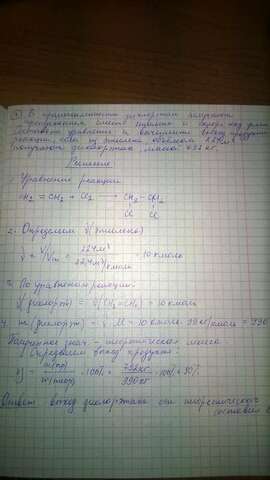 В промышленности дихлорэтан получают
Составьте уравнение и вычислите выход продукта
реакции, если из этилена объемом 224 м³
получили дихлорэтан массой
Решение
Уравнение реакции
CH₂ = CH₂ + Cl₂ → CH₂ – CH₂
Cl Cl
2. Определяем ν(этилена)
ν = V/Vm = 224 м³ / 22,4 м³/кмоль = 10 кмоль
3. По уравнению реакции:
ν(дихлорэт) = ν(CH₂=CH₂) = 10 кмоль
4. m(дихлорэт) = ν · M = 10 кмоль · 99 кг/кмоль = 990
Полученное знач – теоретическая масса
Определяем выход продукта:
η = m(пр) / m(теор) · 100% = / 990 кг · 100% =
Ответ: выход дихлорэтана от теоретического
составил